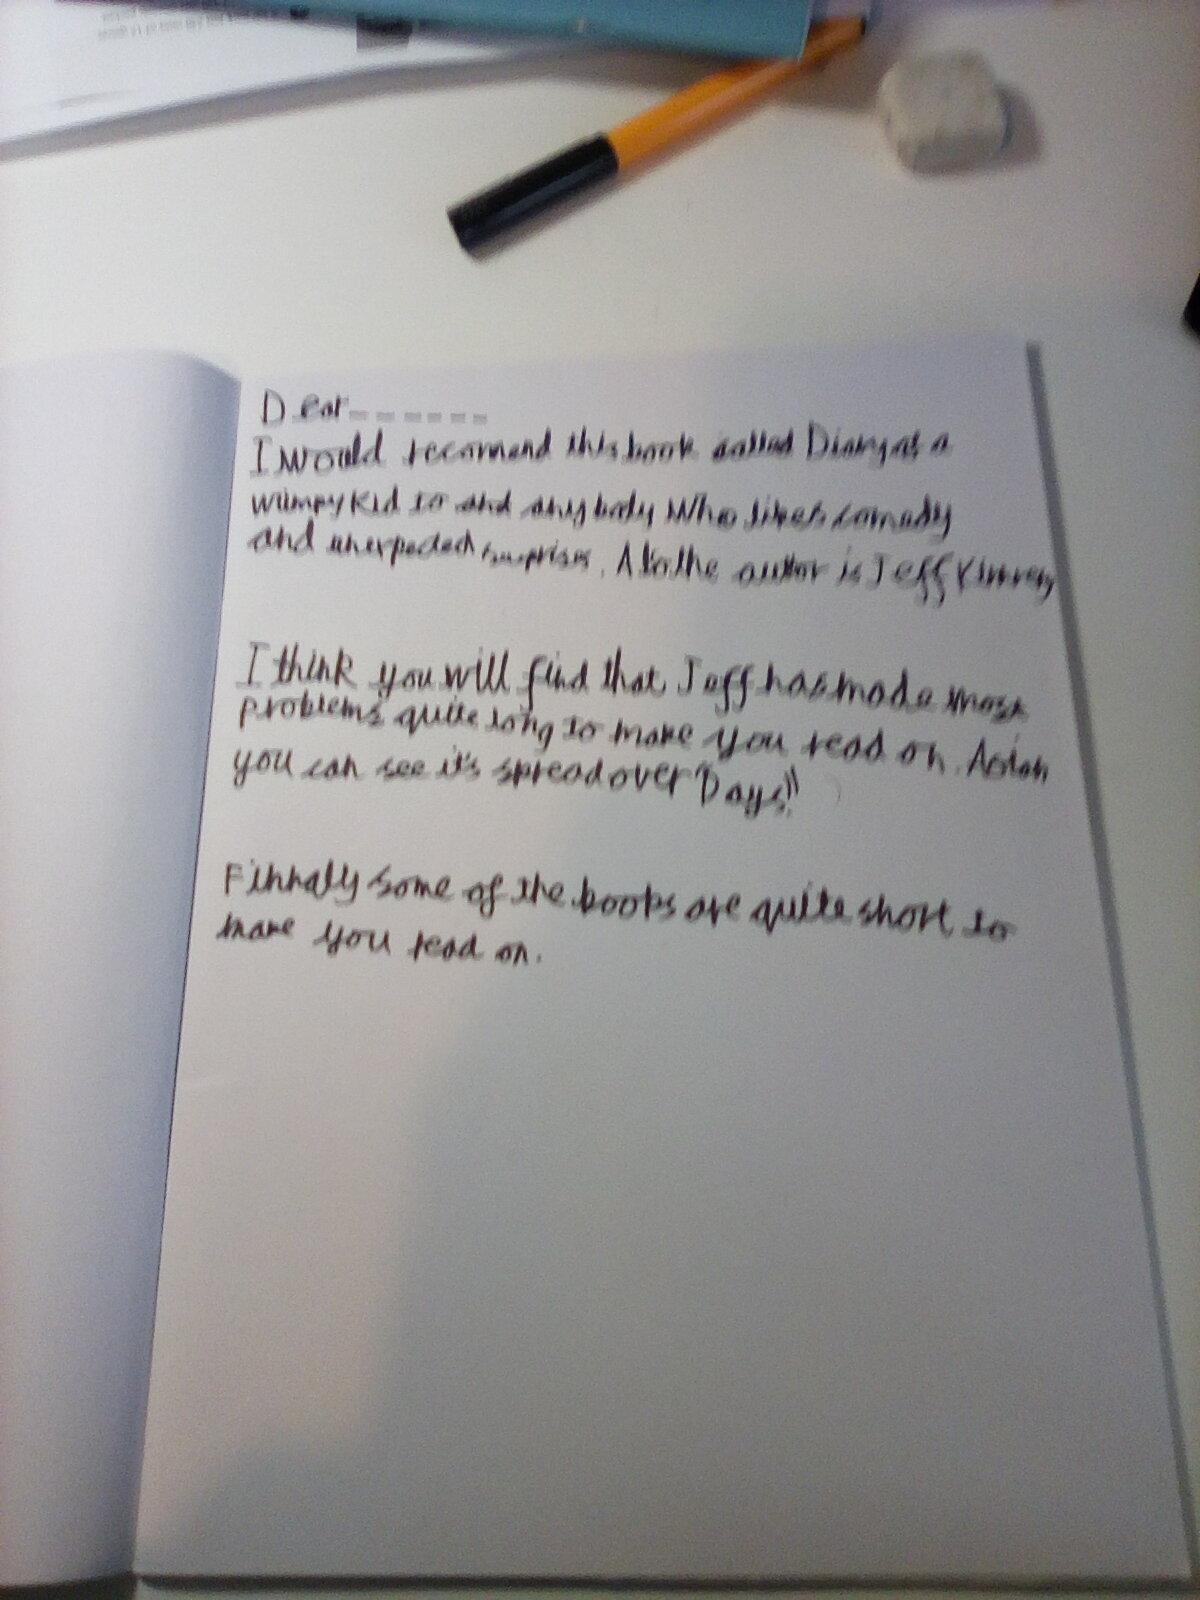 Dear------
I would recomend this book called Diary of a
wimpy Kid to and anybody who likes comedy
and unexpected surprises. Also the author is Jeff Kinney
I think you will find that Jeff has made most
problems quite long to make you read on. And
you can see it's spread over "Days"!
Finnally some of the books are quite short to
make you read on.